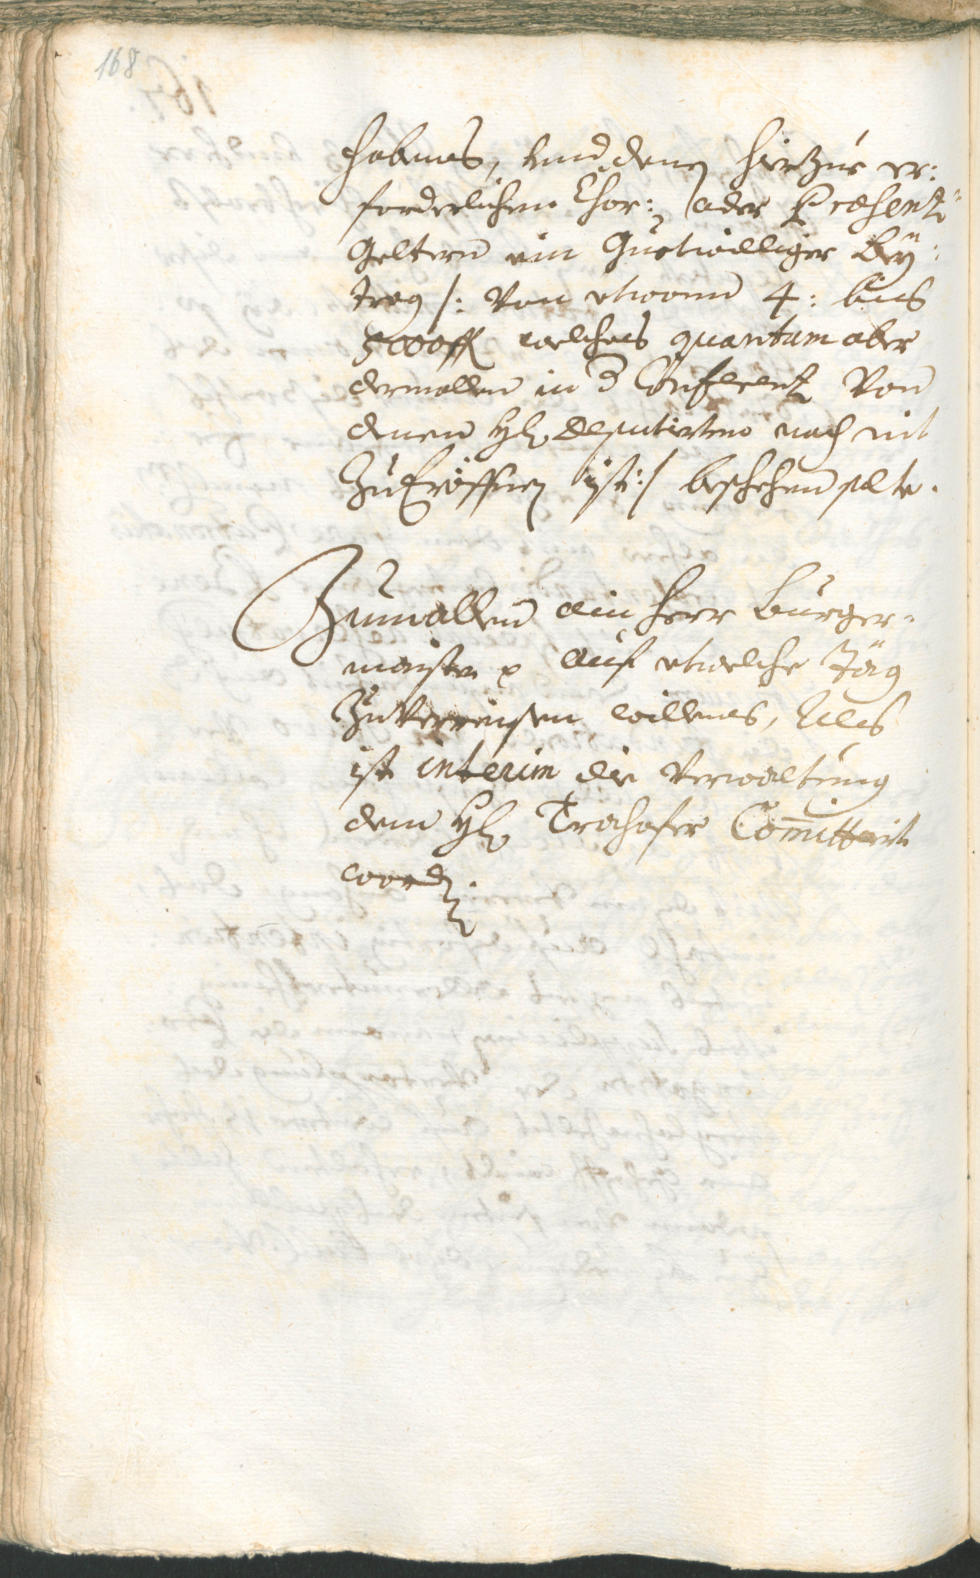 168
habens, vnd denen hierzue er:
forderlichen Chor: oder Præsenz
Geltern ein Guetwilliger Bey:
trag /: von etwann 4: biß
5000 fl welches quantum aber
dermallen in d Conferenz von
denen H. Deputierten noch nit
zu Eröffnen ist :/ beschehen solte.
Zumallen ein Herr Burger-
maister auf etwelche Täg
zuverreisen willens, Alls
ist interim die Verwaltung
dem H. Trochofer Committiert
worden.